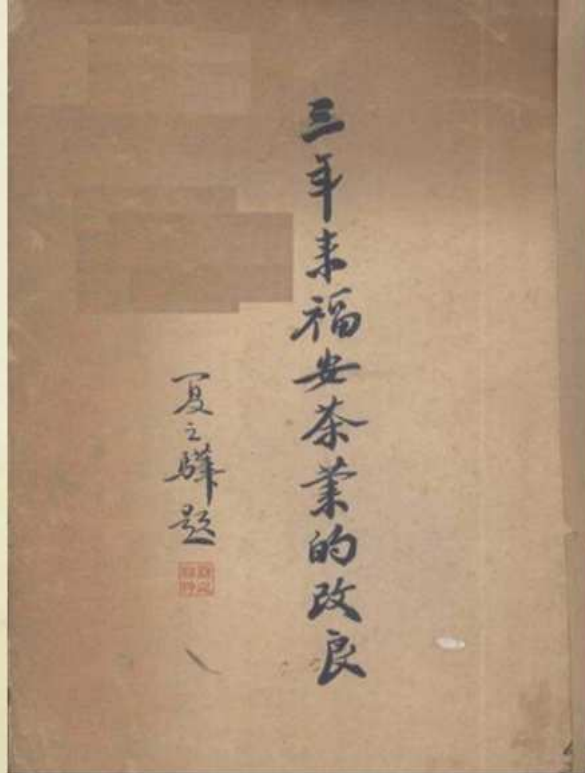 三年来福安茶業的改良
夏之驊題